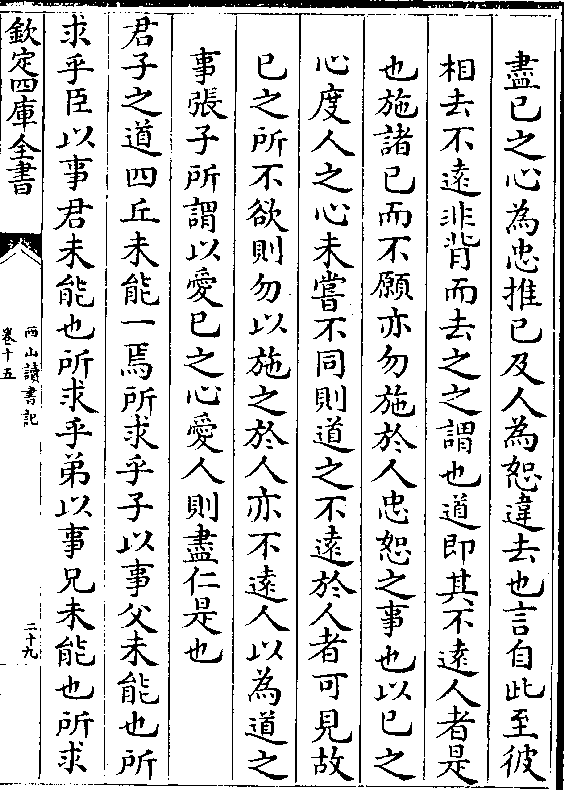 盡已之心為忠推已及人為恕違去也言自此至彼
相去不遠非背而去之之謂也道即其不遠人者是
也施諸已而不願亦勿施於人忠恕之事也以已之
心度人之心未嘗不同則道之不遠於人者可見故
已之所不欲則勿以施之於人亦不遠人以為道之
事張子所謂以愛已之心愛人則盡仁是也
君子之道四丘未能一焉所求乎子以事父未能也所
求乎臣以事君未能也所求乎弟以事兄未能也所求
欽定四庫全書
西山讀書記
卷十五
二十九